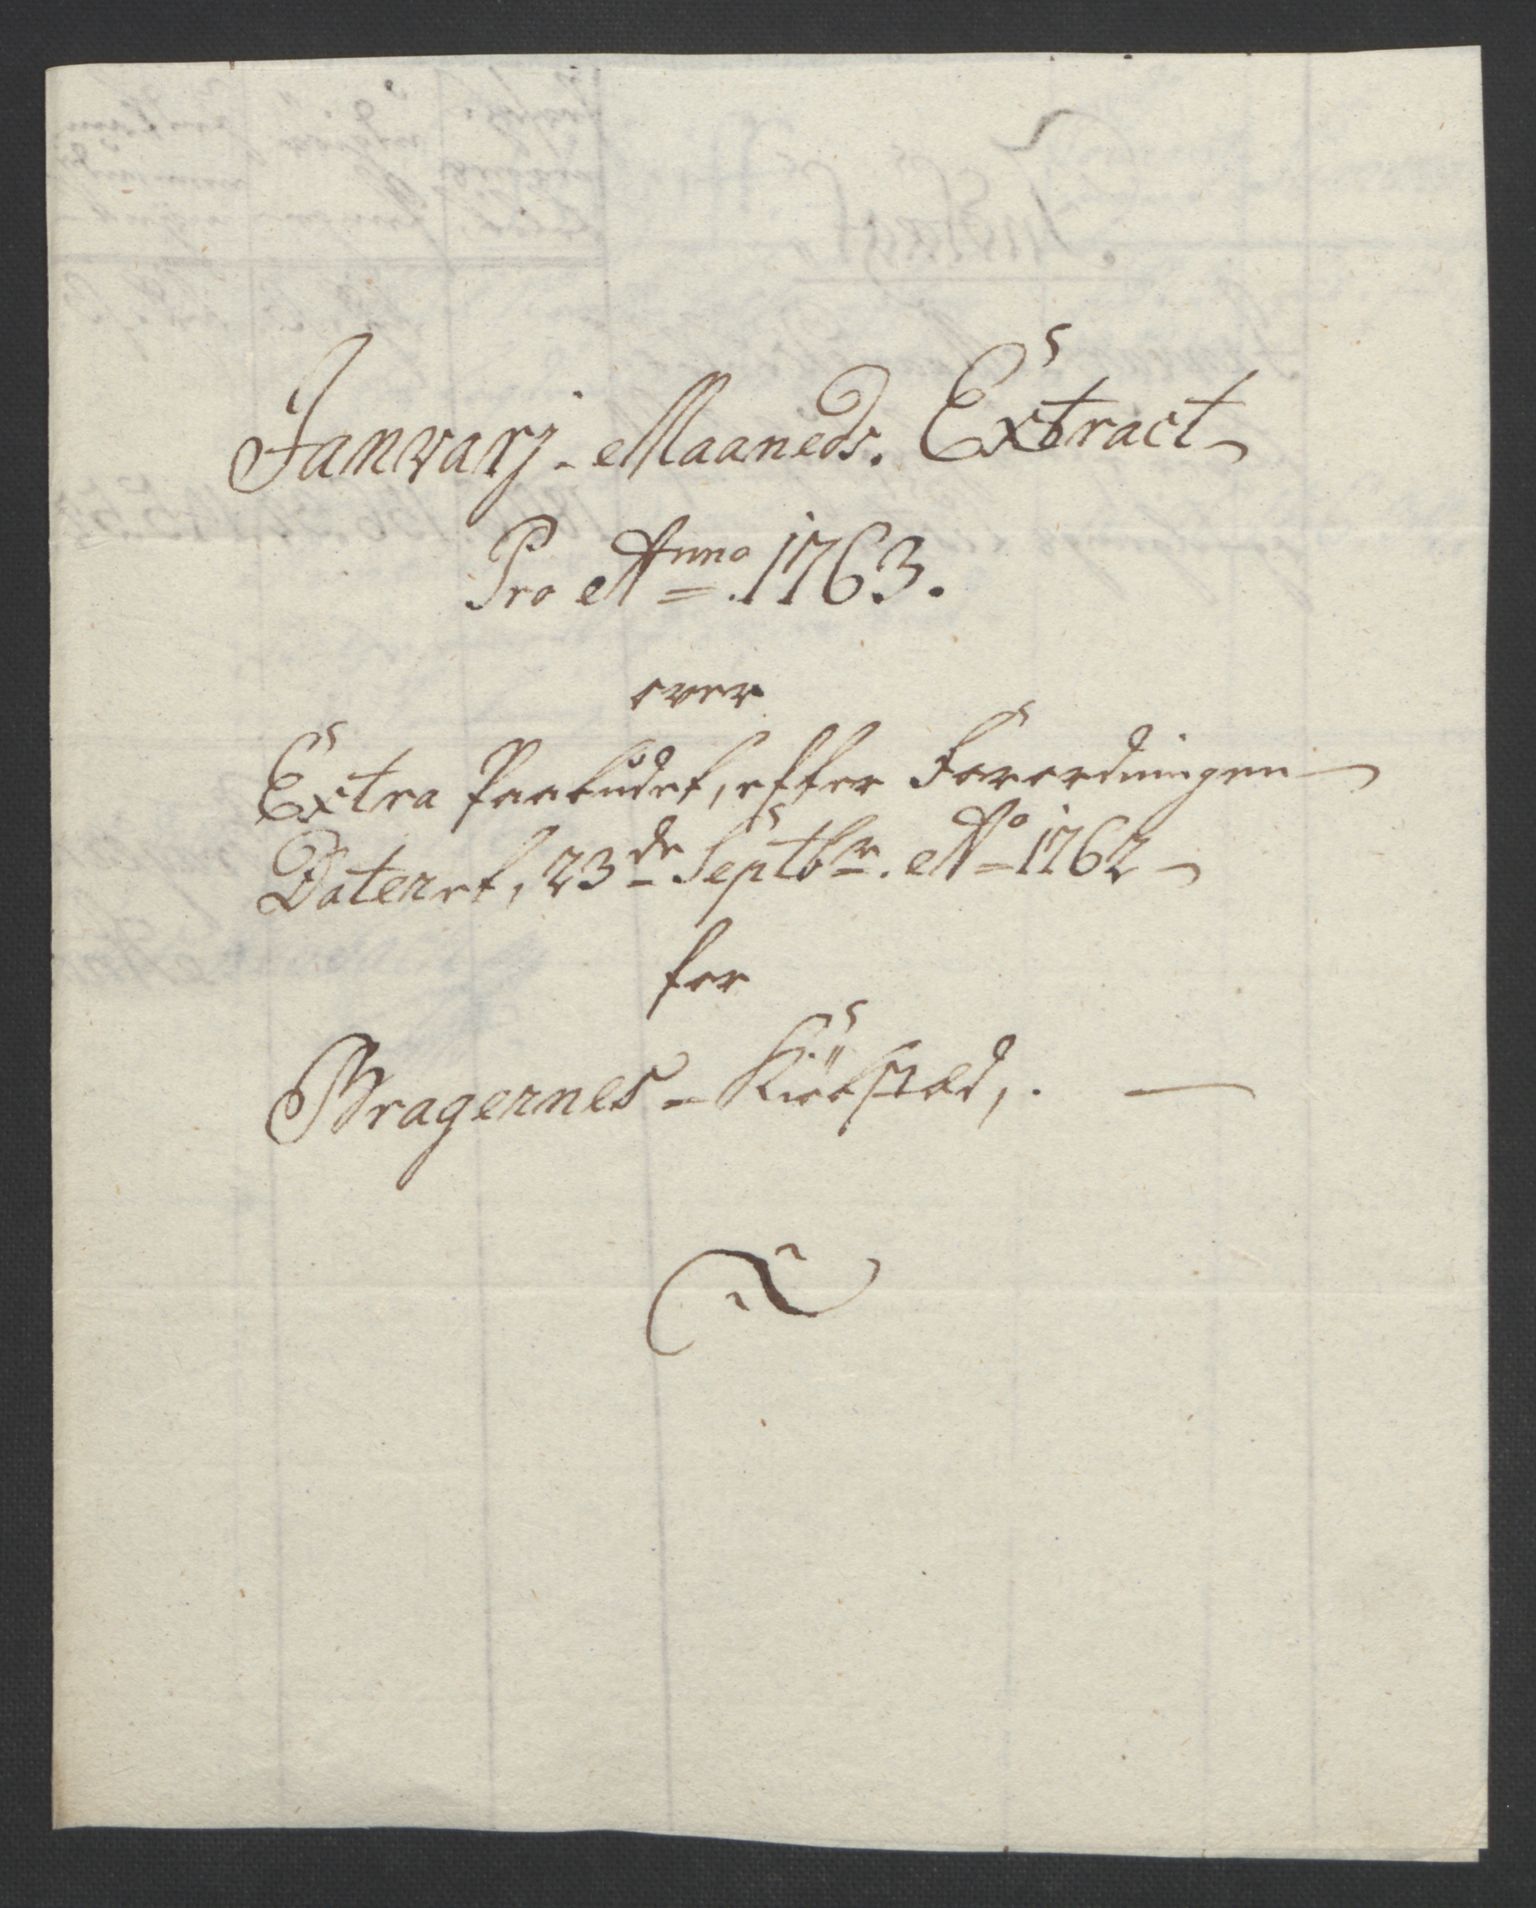 Janvarj Maaneds. Extract
Pro Anno 1763.
over
Extra Paabudet, efter Forordningen
Dateret, 23de Septbr. Ao 1762
for
Bragernes Kiöbstæd,.